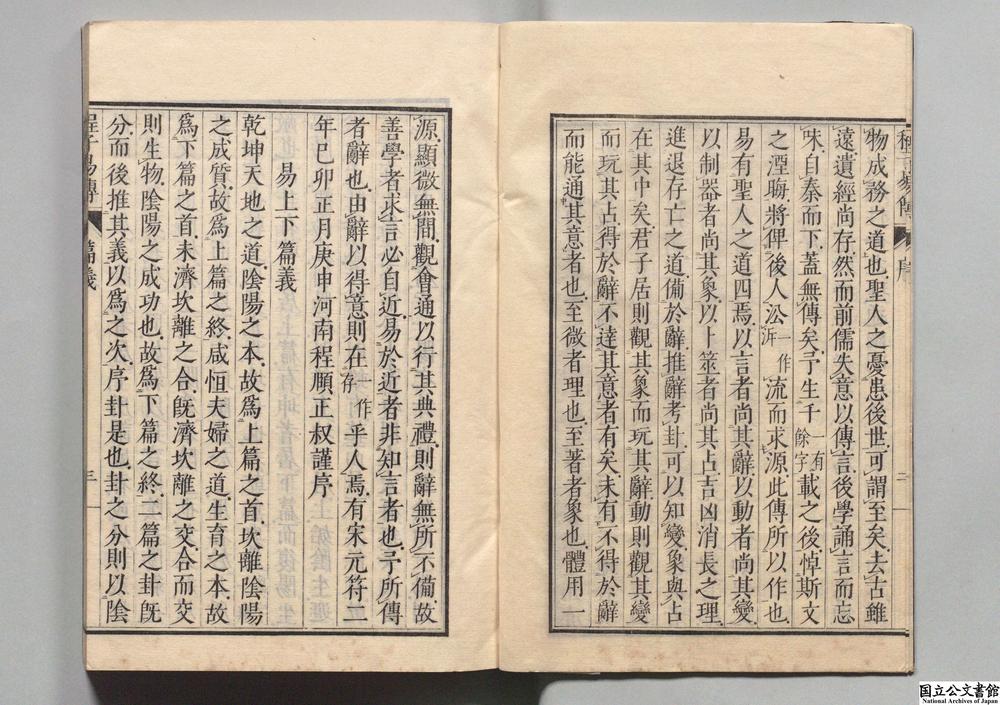 程子易傳 序 二
物成務之道也聖人之憂患後世可謂至矣去古雖
遠遺經尚存然而前儒失意以傳言後學誦言而忘
味自秦而下蓋無傳矣予生千一有餘字載之後悼斯文
之湮晦將俾後人沿一作泝流而求源此傳所以作也
易有聖人之道四焉以言者尚其辭以動者尚其變
以制器者尚其象以卜筮者尚其占吉凶消長之理
進退存亡之道備於辭推辭考卦可以知變象與占
在其中矣君子居則觀其象而玩其辭動則觀其變
而玩其占得於辭不達其意者有矣未有不得於辭
而能通其意者也至微者理也至著者象也體用一
源顯微無間觀會通以行其典禮則辭無所不備故
善學者求言必自近易於近者非知言者也予所傳
者辭也由辭以得意則在一作存乎人焉有宋元符二
年己卯正月庚申河南程頤正叔謹序
易上下篇義
乾坤天地之道陰陽之本故爲上篇之首坎離陰陽
之成質故爲上篇之終咸恒夫婦之道生育之本故
爲下篇之首未濟坎離之合旣濟坎離之交合而交
則生物陰陽之成功也故爲下篇之終二篇之卦旣
分而後推其義以爲之次序卦是也卦之分則以陰
程子易傳 篇義 三
国立公文書館
National Archives of Japan